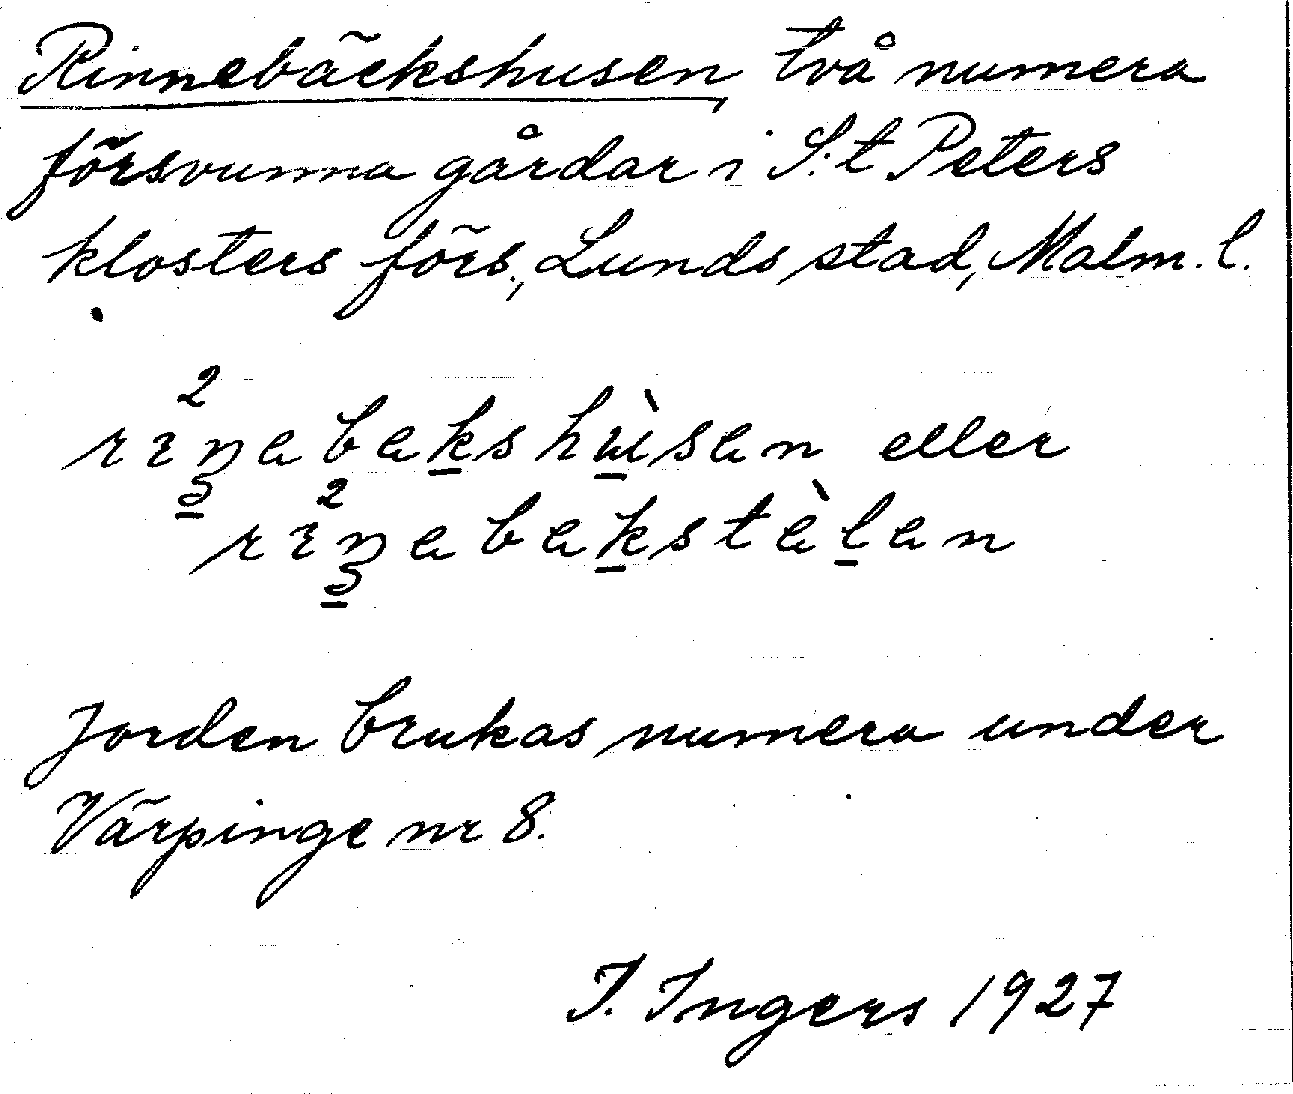 Rinnebäckshusen, två numera
försvunna gårdar i S:t Peters
klosters förs., Lunds stad, Malm. l.
rinabakshùsan eller
rinabakstàlan
Jorden brukas numera under
Värpinge nr 8.
I. Ingers 1927